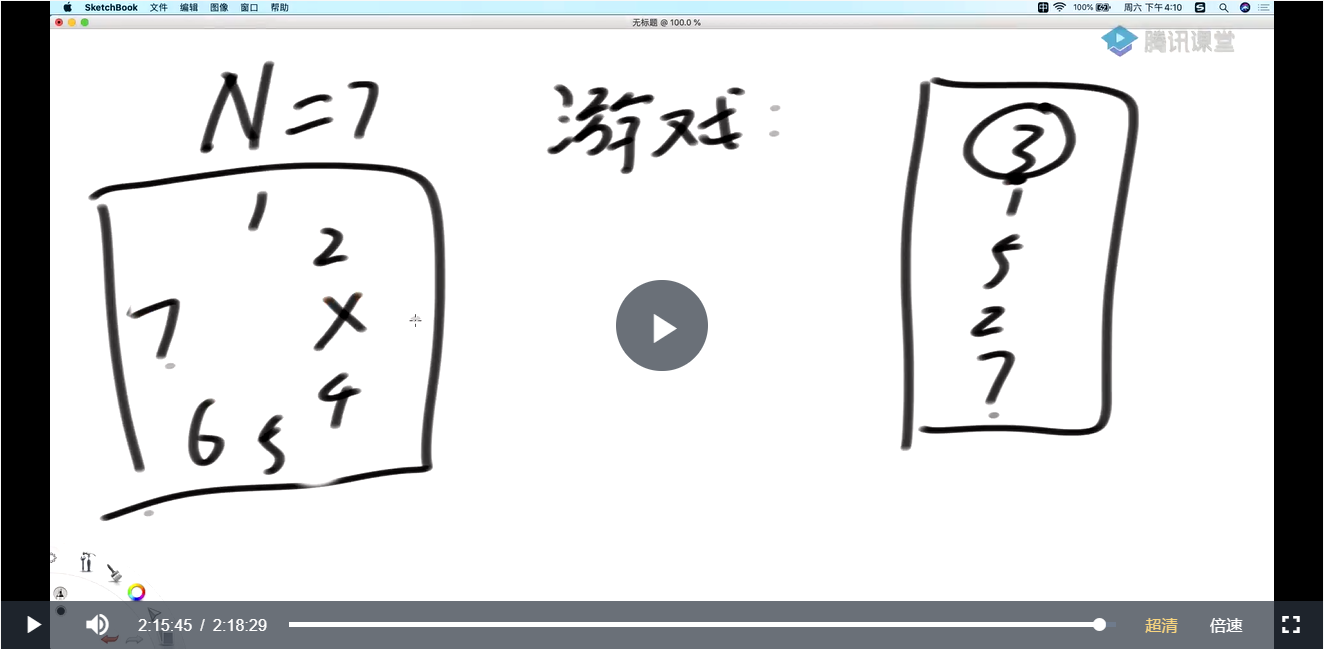 SketchBook 文件 编辑 图像 窗口 帮助 100% 周六 下午4:10
无标题 @ 100.0 %
腾讯课堂
N=7
游戏:
1
2
7
X
4
6
5
3
1
5
2
7
2:15:45 / 2:18:29 超清 倍速